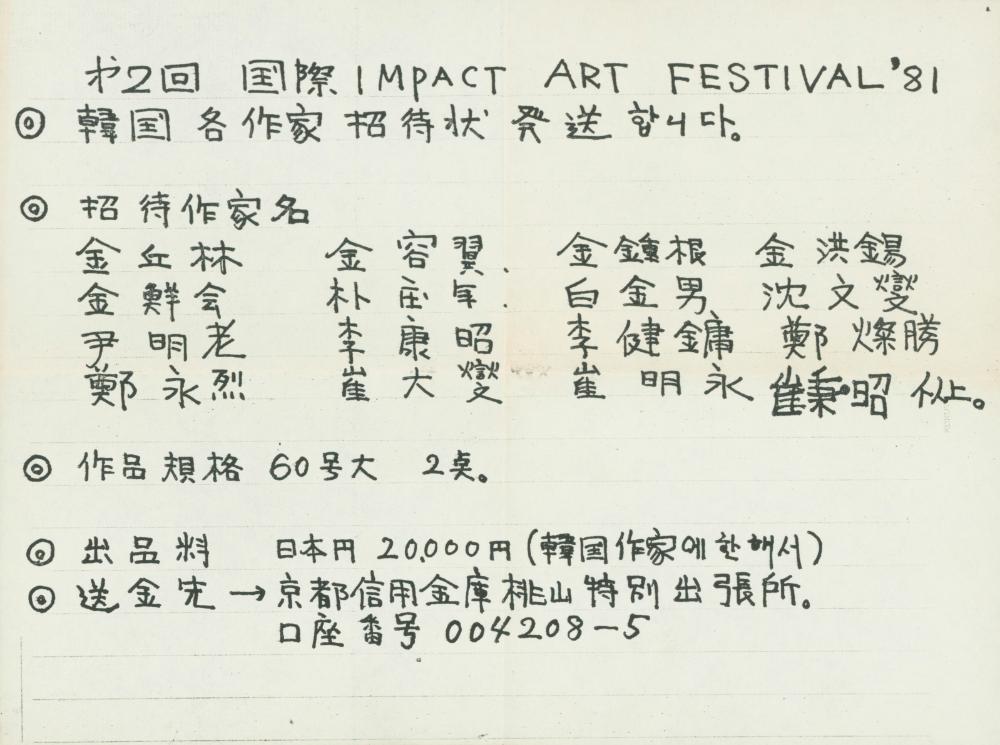 才2回 国際 IMPACT ART FESTIVAL '81
◎ 韓国 各作家 招待状 発送 합니다。
◎ 招待作家名
金丘林 金容翼. 金鍾根 金洪錫
金鮮会 朴庄年. 白金男 沈文燮
尹明老 李康昭 李健鏞 鄭燦勝
鄭永烈 崔大燮 崔明永 崔秉昭 以上。
◎ 作品規格 60号大 2点。
◎ 出品料 日本円 20,000円 (韓国作家에한해서)
◎ 送金先 → 京都信用金庫 桃山特別出張所。
口座番号 004208-5